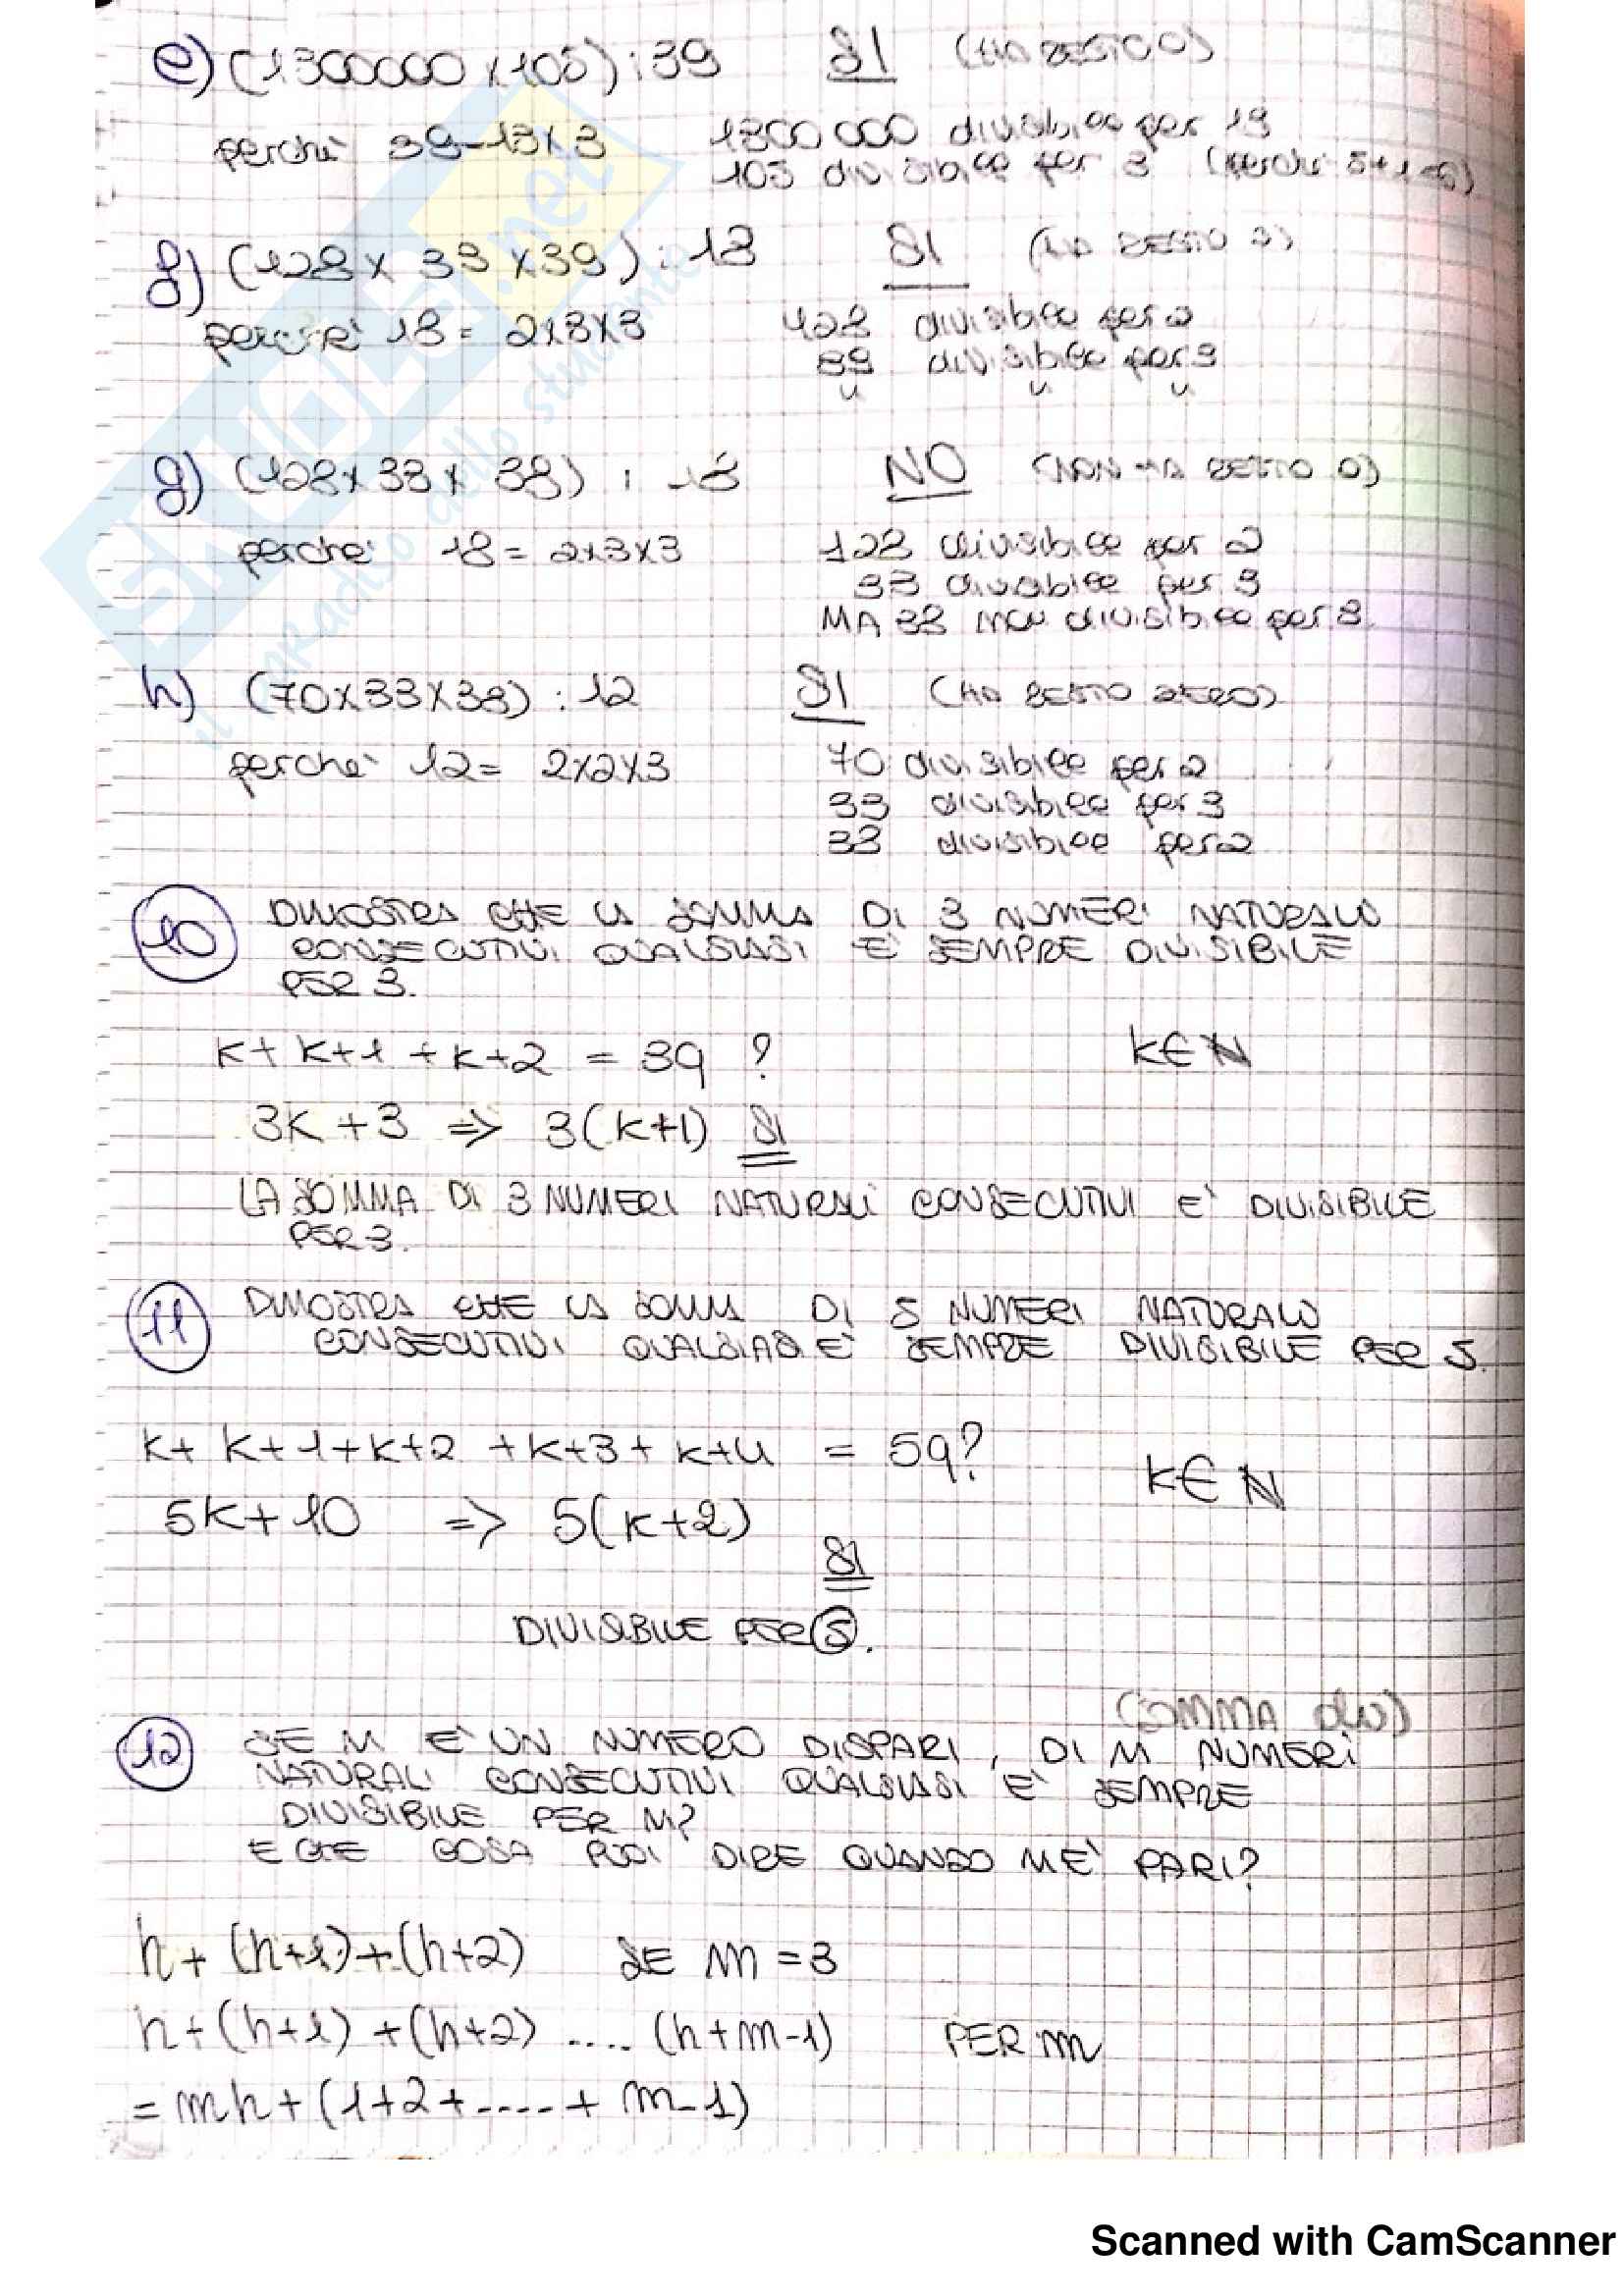 e) (1300000 x 105) : 39 SI (HA RESTO 0)
perché 39=13x3 1300000 divisibile per 13
105 divisibile per 3 (perché 5+1=6)
f) (128 x 33 x 39) : 18 SI (HA RESTO 0)
perché 18 = 2x3x3 128 divisibile per 2
39 divisibile per 3
" " "
g) (128 x 33 x 38) : 18 NO (NON HA RESTO 0)
perché 18 = 2x3x3 128 divisibile per 2
33 divisibile per 3
MA 38 non divisibile per 3
h) (70x33x38) : 12 SI (HA RESTO ZERO)
perché 12 = 2x2x3 70 divisibile per 2
33 divisibile per 3
38 divisibile per 2
10 DIMOSTRA CHE LA SOMMA DI 3 NUMERI NATURALI
CONSECUTIVI QUALSIASI E' SEMPRE DIVISIBILE
PER 3.
k+ k+1 + k+2 = 3q ? k∈N
3k+3 => 3(k+1) SI
LA SOMMA DI 3 NUMERI NATURALI CONSECUTIVI E' DIVISIBILE
PER 3.
11 DIMOSTRA CHE LA SOMMA DI 5 NUMERI NATURALI
CONSECUTIVI QUALSIASI E' SEMPRE DIVISIBILE PER 5.
k+ k+1+k+2 +k+3+ k+4 = 5q? k∈N
5k+10 => 5(k+2)
SI
DIVISIBILE PER 5.
(SOMMA di)
12 SE M E' UN NUMERO DISPARI, DI M NUMERI
NATURALI CONSECUTIVI QUALSIASI E' SEMPRE
DIVISIBILE PER M?
E CHE COSA PUOI DIRE QUANDO M E' PARI?
h+ (h+1)+(h+2) SE m = 3
h+(h+1) +(h+2) .... (h+m-1) PER m
= mh+(1+2+....+ m-1)
SKUOLA.net
il paradiso dello studente
Scanned with CamScanner